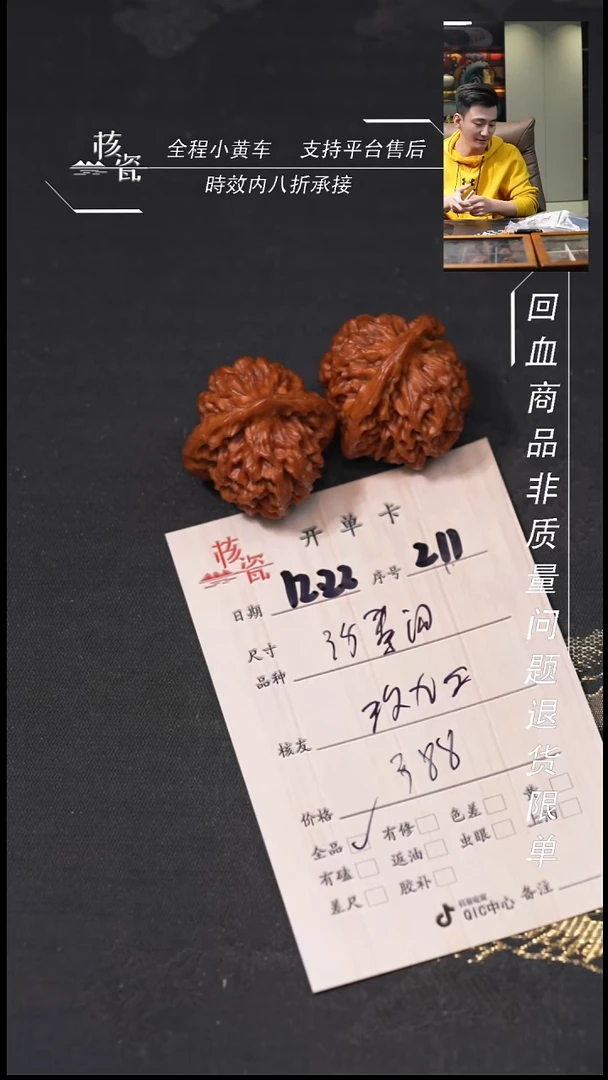 核瓷
全程小黄车 支持平台售后
時效内八折承接
回血商品非质量问题退货限单
核瓷
开单卡
日期 12.22 序号 211
尺寸
品种
核友
价格 388
全品 ✓ 有修 色差
有磕 返油 虫眼
差尺 胶补
抖音电商
QIC中心 备注